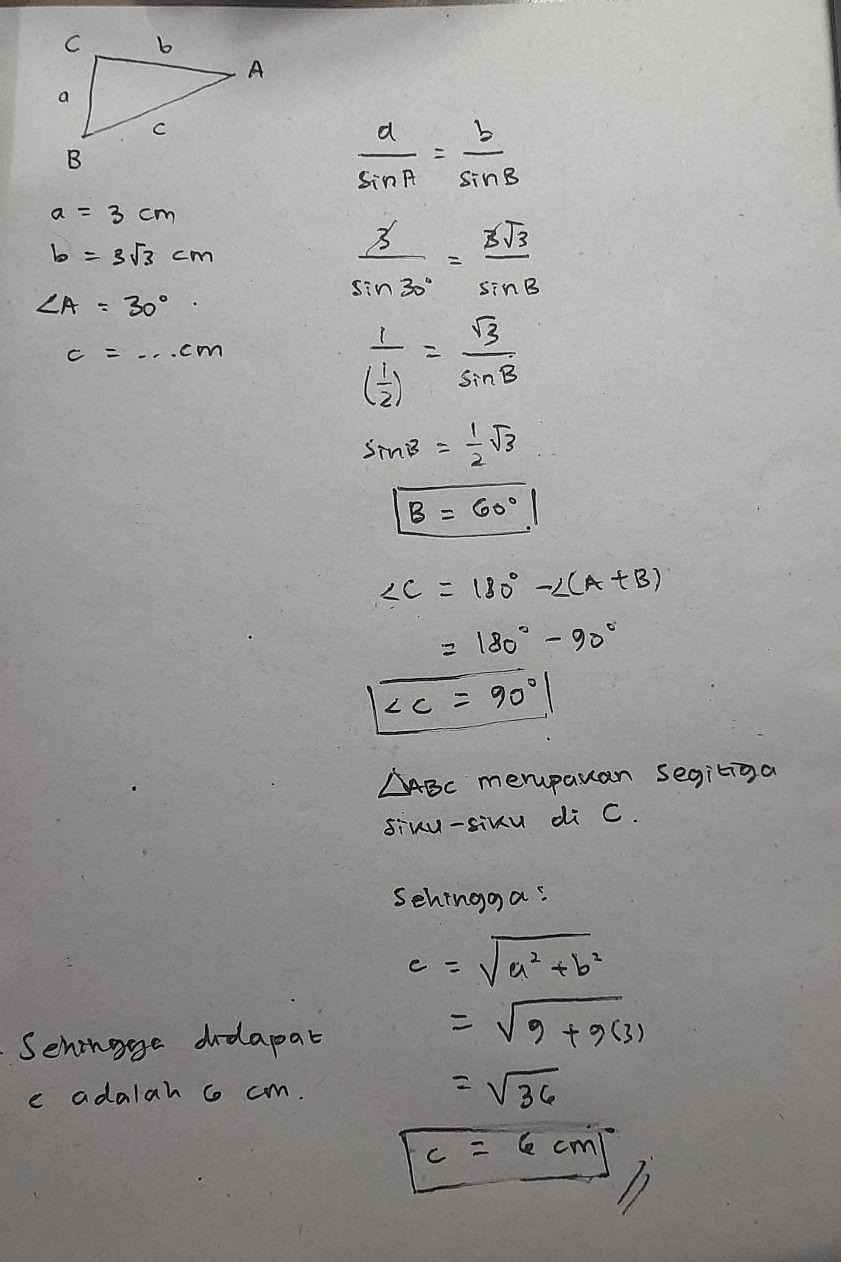 C b A
a c
B
a = 3 cm
b = 3√3 cm
∠A = 30°.
c = ...cm
a/sin A = b/sin B
3/sin 30° = 3√3/sin B
1/(1/2) = √3/sin B
sin B = 1/2 √3
B = 60°
∠C = 180° - ∠(A + B)
= 180° - 90°
∠C = 90°
△ABC merupakan segitiga
siku-siku di C.
Sehingga:
c = √(a² + b²)
= √(9 + 9(3))
= √36
c = 6 cm //
Sehingga didapat
c adalah 6 cm.